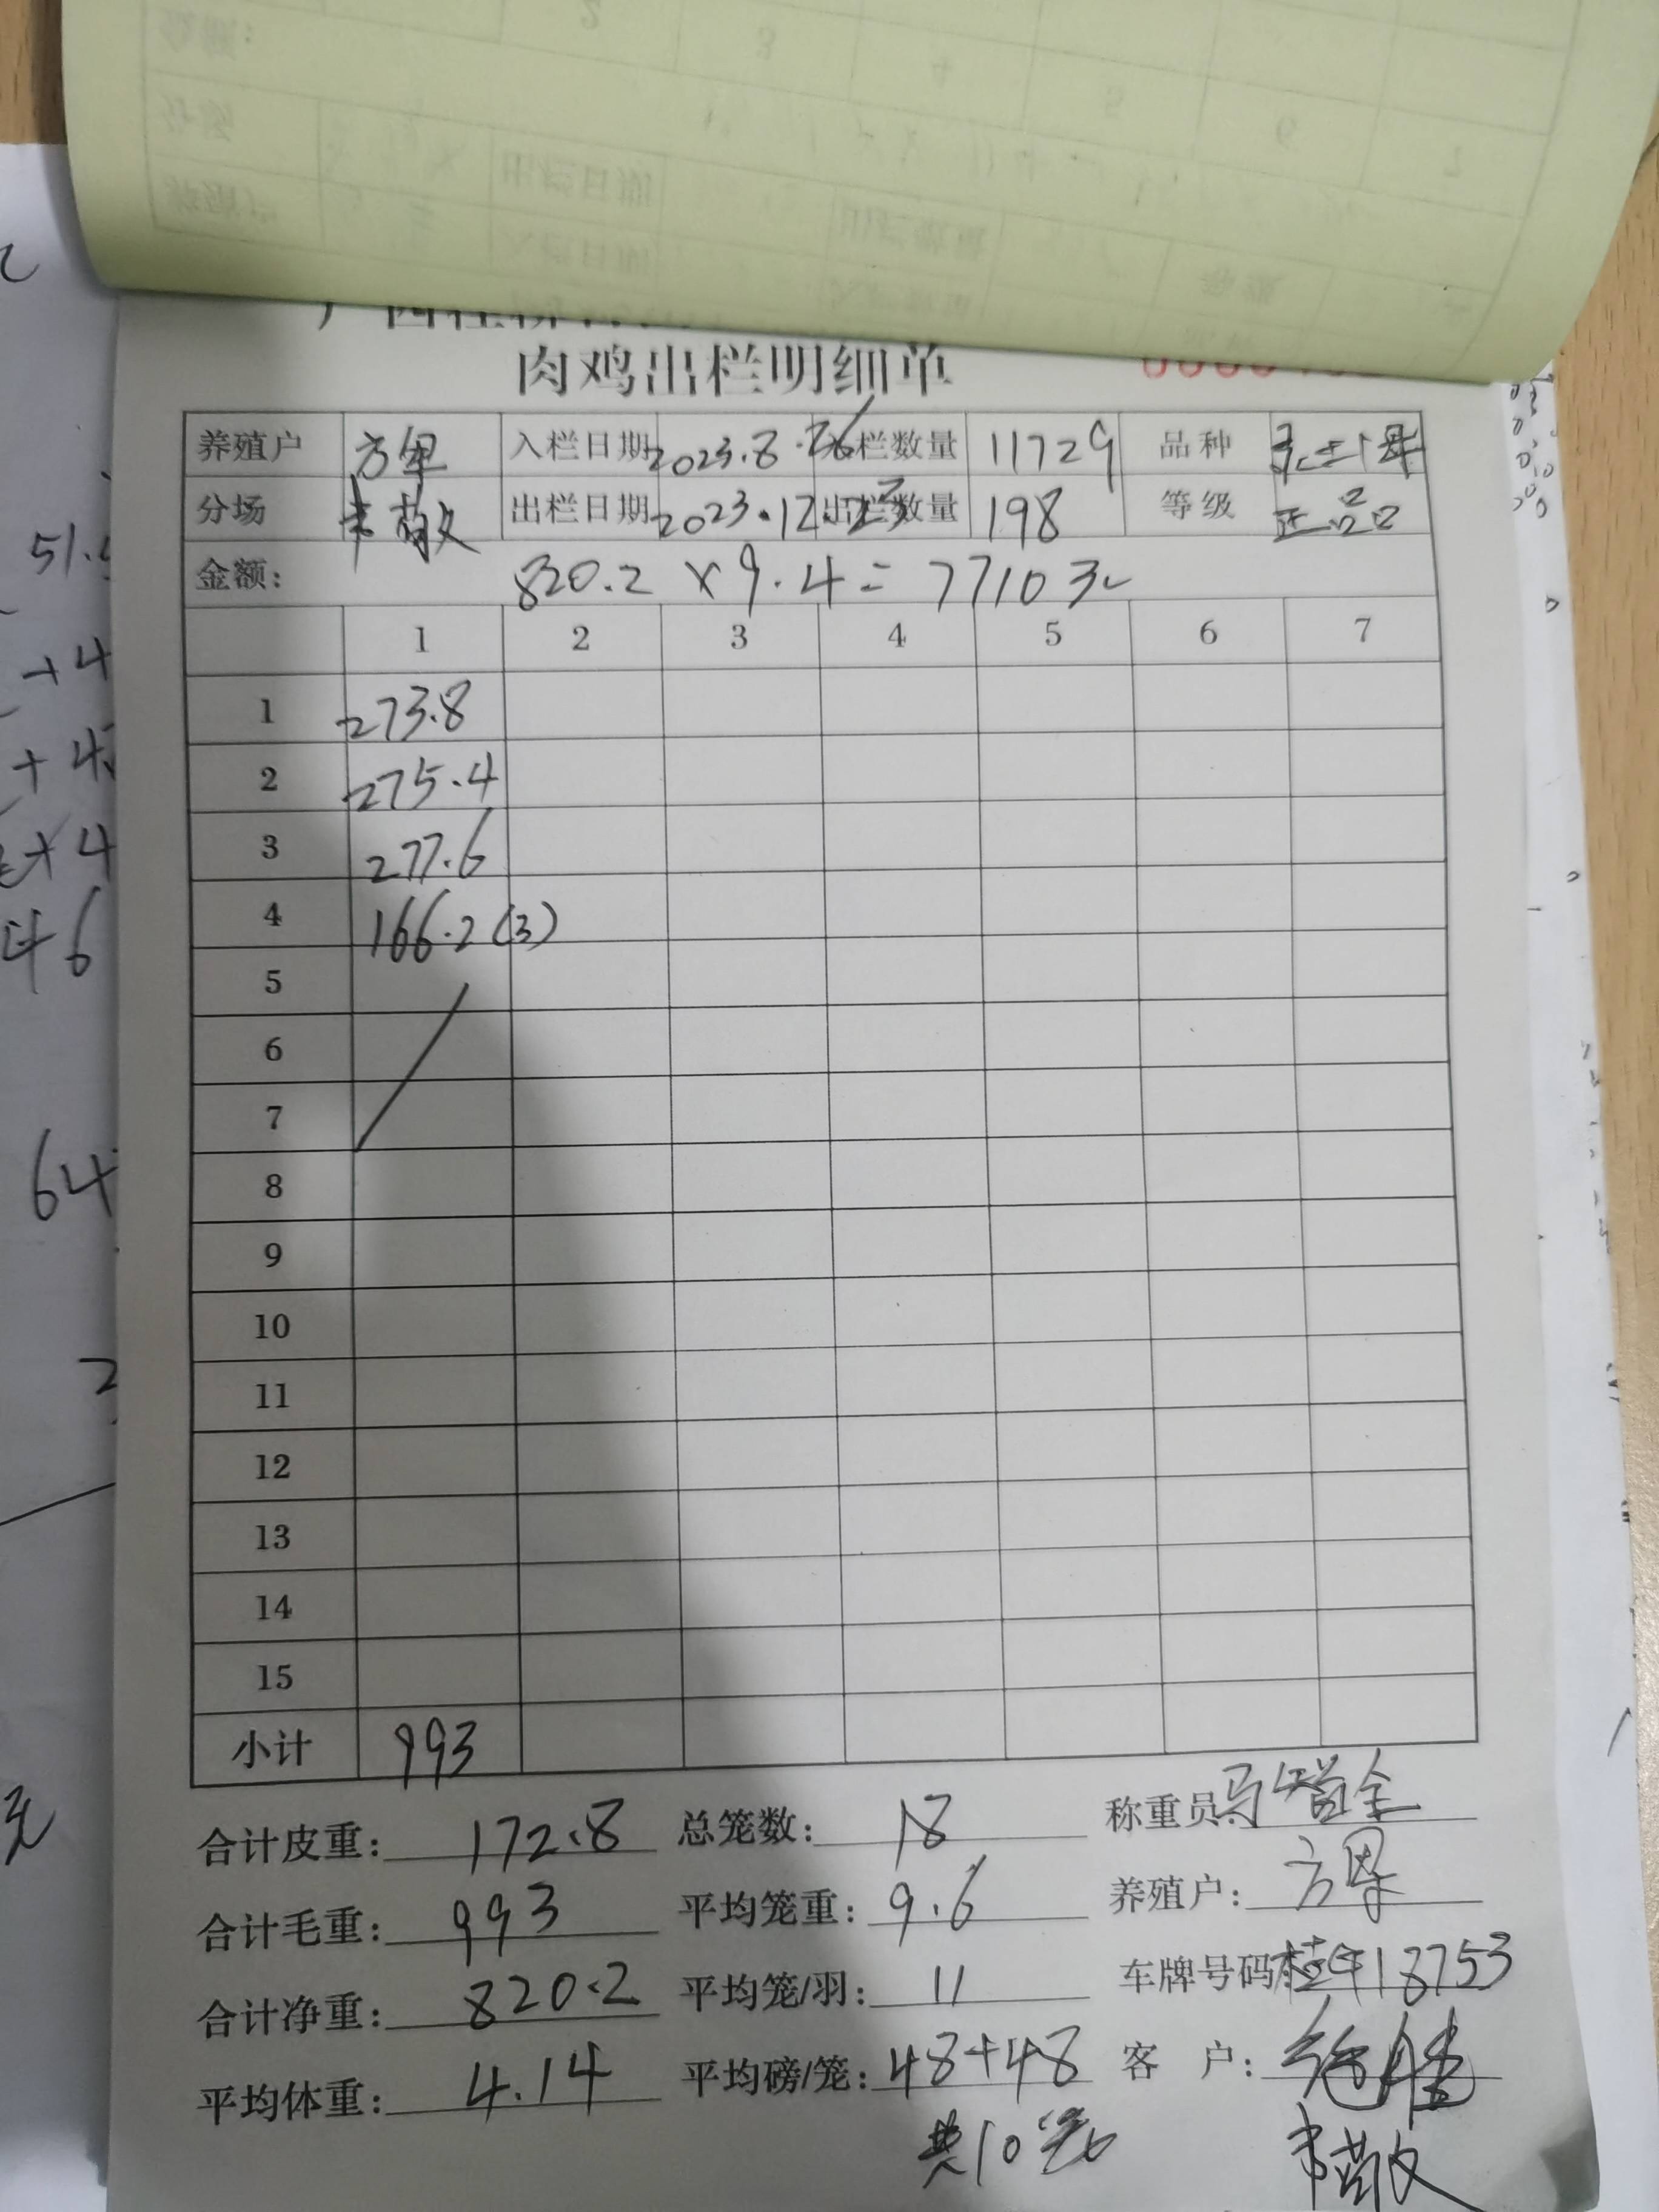 肉鸡出栏明细单
养殖户 方军 入栏日期 2023.8.26 入栏数量 11729 品种
分场 韦敬文 出栏日期 2023.12.23 出栏数量 198 等级 正品
金额: 820.2 × 9.4 = 7710元
1 2 3 4 5 6 7
1 273.8
2 275.4
3 277.6
4 166.2 (3)
5
6
7
8
9
10
11
12
13
14
15
小计 993
合计皮重: 172.8 总笼数: 18 称重员:
合计毛重: 993 平均笼重: 9.6 养殖户: 方
合计净重: 820.2 平均笼/羽: 11 车牌号码 18753
平均体重: 4.14 平均磅/笼: 48+48 客 户:
共10笼 韦敬文
51.
+4
+4
+4
46
64
2
元